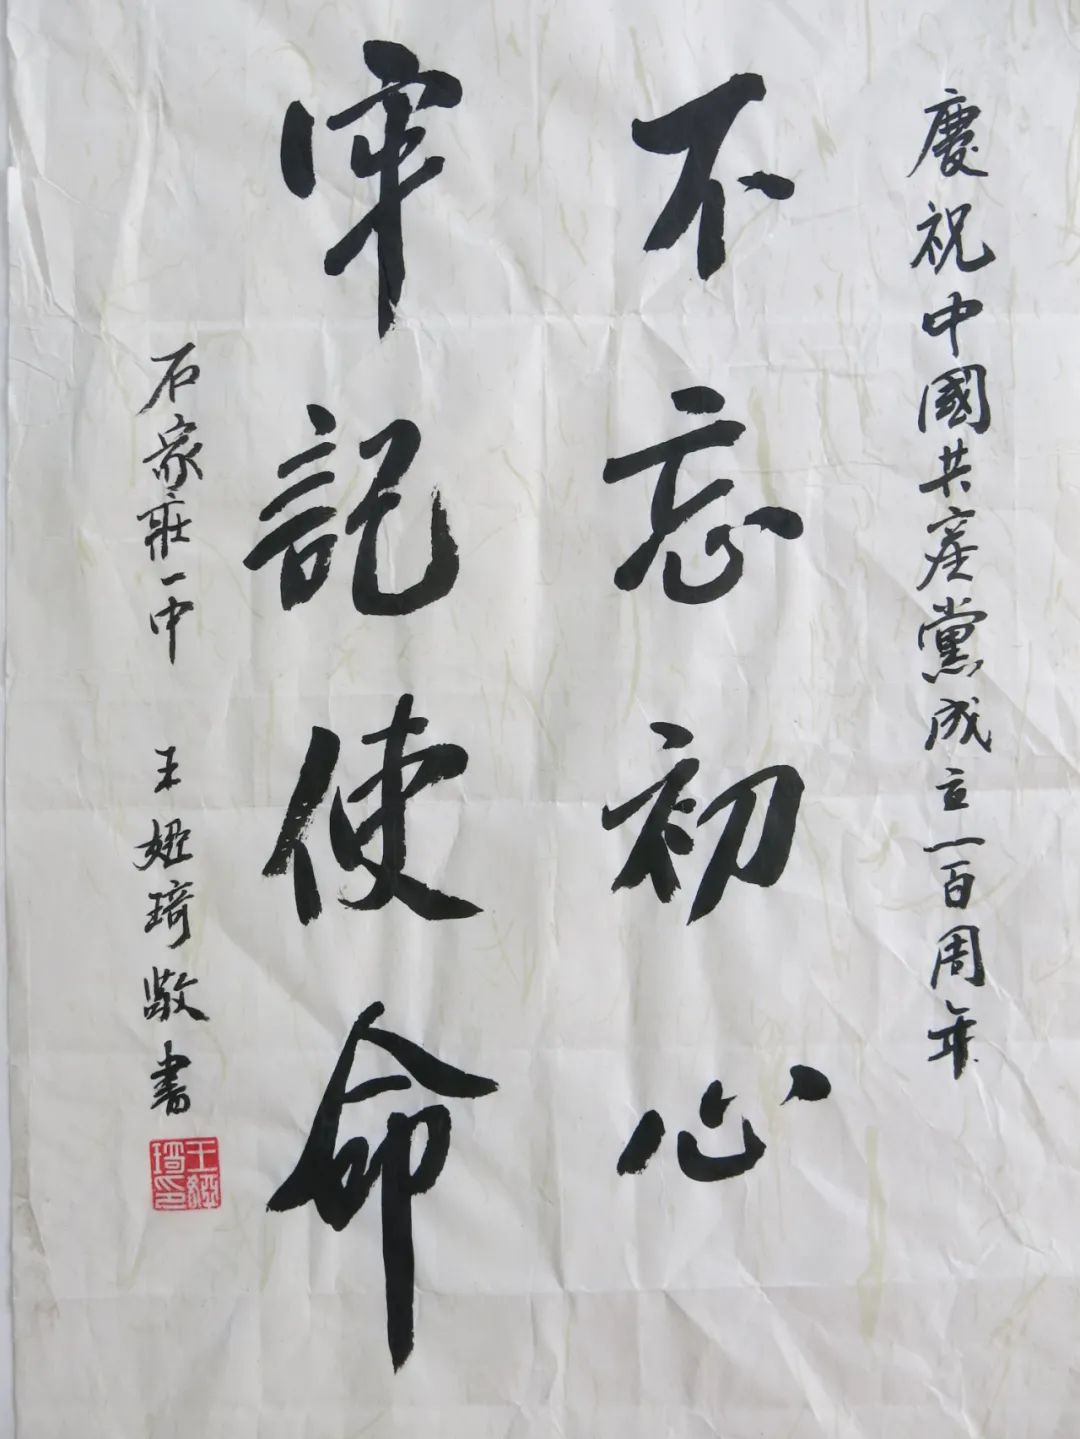 慶祝中國共產黨成立一百周年
不忘初心
牢記使命
石家莊一中
王婭琦敬書